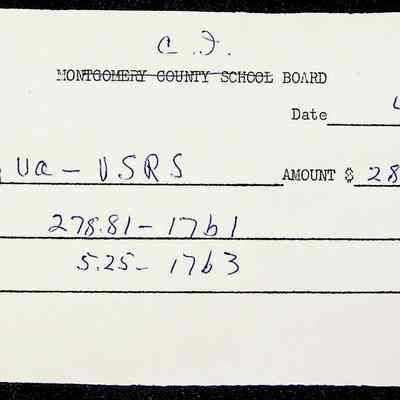 C. I.
MONTGOMERY COUNTY SCHOOL BOARD
Date
Va - VSRS AMOUNT $ 28
278.81 - 17b1
5.25 - 17b3